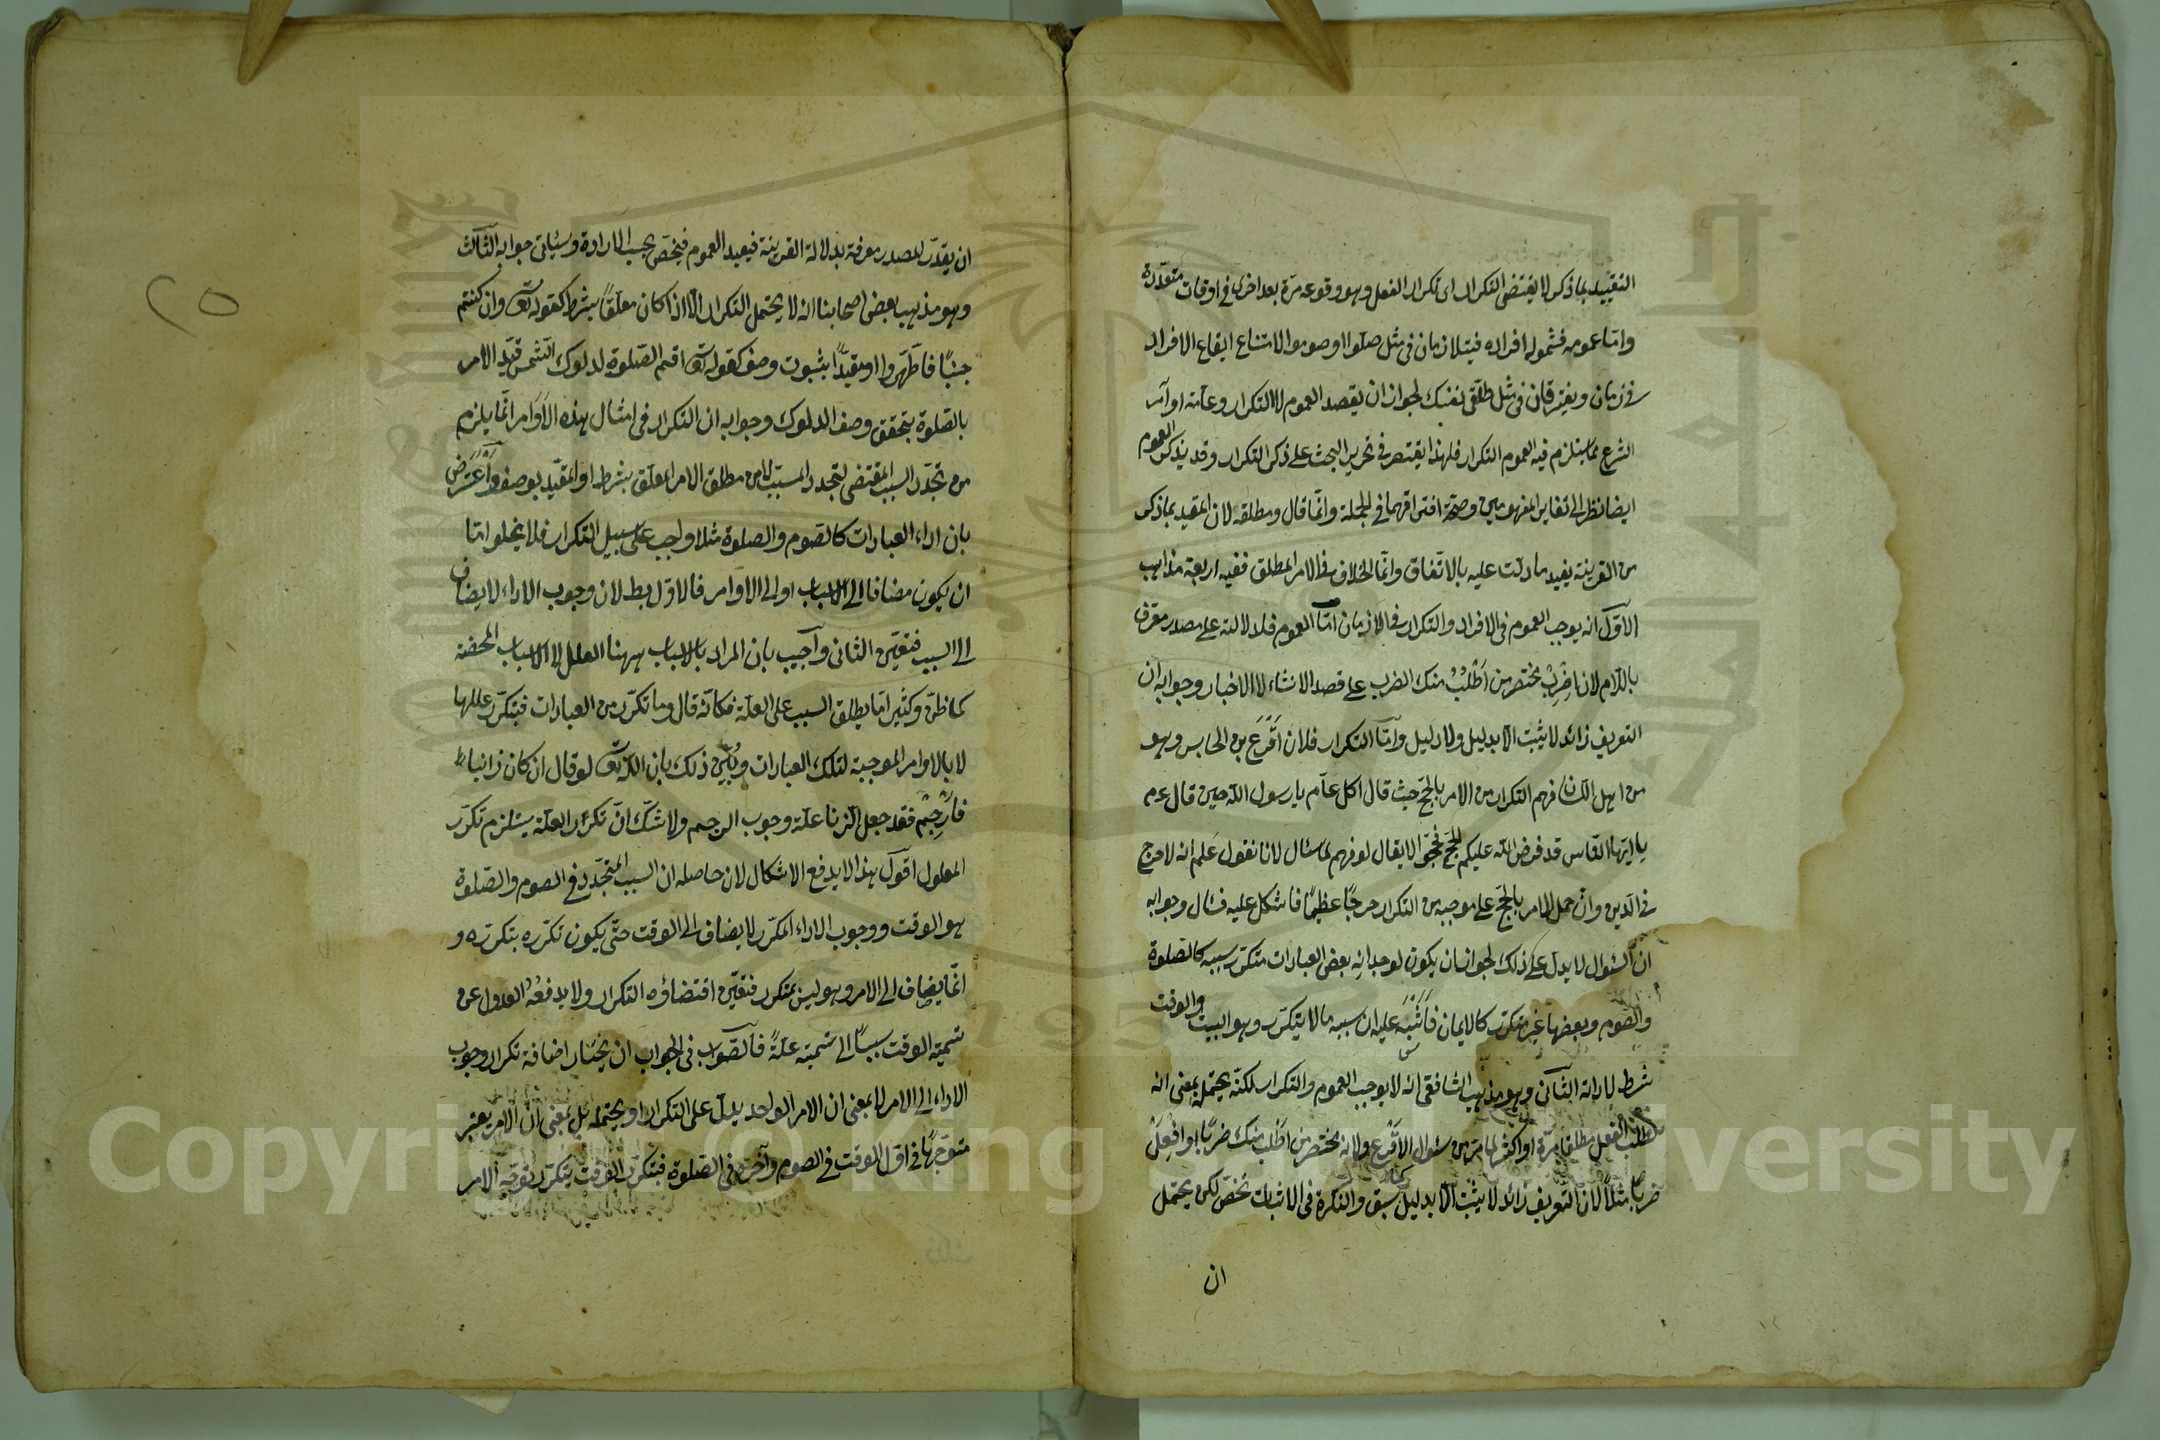 التقييد بما ذكر لا يقتضى التكرار اى تكرار الفعل وهو وقوعه مرّة بعد اخرى فى اوقات متعدّدة
وامّا عمومه فشموله افراده فيتلازمان فى مثل صلّوا وصوموا لامتناع ايقاع الافراد
فى زمان ويفترقان فى مثل طلّقى نفسك لجواز ان يقصد العموم لا التكرار وعامة اوامر
الشرع مما يستلزم فيه العموم التكرار فلهذا يقتصر فى تحرير البحث على ذكر التكرار وقد يذكر العموم
ايضا نظرا الى تغاير المفهومين وصحّة افتراقهما فى الجملة وانّما قال ومطلقه لان المقيد بما ذكر
من القرينة يفيد ما دلّت عليه بالاتّفاق وانّما الخلاف فى الامر المطلق ففيه اربعة مذاهب
الاوّل انه يوجب العموم فى الافراد والتكرار فى الازمان امّا العموم فلدلالته على مصدر معرّف
باللّام لان اضرب مختصر من اطلب منك الضرب على قصد الانشاء لا الاخبار وجوابه ان
التعريف زائد لا يثبت الّا بدليل ولا دليل وامّا التكرار فلان اقرع بن الحابس وهو
من اهل اللسان فهم التكرار من الامر بالحجّ حيث قال اكل عام يا رسول الله حين قال عم
يا ايّها النّاس قد فرض الله عليكم الحجّ فحجّوا لا يقال لو فهم لما سئال لانا نقول علم انه لا حرج
فى الدين وان حمل الامر بالحجّ على موجبه من التكرار حرجًا عظيمًا فاشكل عليه فسئال وجوابه
ان السئوال لا يدلّ على ذلك لجواز ان يكون لوجدانه بعض العبادات متكرّر سببه كالصّلوة
والصّوم وبعضها غير متكرّر كالايمان فاشبه عليه ان سببه ما لا يتكرّر وهو البيت والوقت
شرط لادائه الثانى وهو مذهب الشافعى انه لا يوجب العموم والتكرار لكنّه يحتمله بمعنى انه
لطلب الفعل مطلقا مرّة او اكثر لما مرّ من سئوال الاقرع ولانه مختصر من اطلب منك ضربًا او افعل
ضربًا مثلا لان التعريف زائد لا يثبت الّا بدليل كما سبق والنكرة فى الاثبات تخصّ لكن يحتمل
ان
٢٥
ان يقدّر المصدر معرفة بدلالة القرينة فيفيد العموم فيخصّ بحسب الارادة وسيأتى جوابه الثالث
وهو مذهب بعض اصحابنا انه لا يحتمل التكرار الّا اذا كان معلّقًا بشرط كقوله تع وان كنتم
جنبًا فاطّهّروا او مقيّدًا بثبوت وصف كقوله تع اقم الصّلوة لدلوك الشّمس قيّد الامر
بالصّلوة بتحقق وصف الدلوك وجوابه ان التكرار فى امثال هذه الاوامر انّما يلزم
من تجدّد السبب المقتضى لتجدد المسبب لا من مطلق الامر المعلّق بشرط او المقيّد بوصف واعترض
بان اداء العبادات كالصّوم والصلوة مثلا واجب على سبيل التكرار فلا يخلو امّا
ان يكون مضافا الى الاسباب او الى الاوامر فالاوّل بط لان وجوب الاداء لا يضاف
الى السبب فتعيّن الثانى واجيب بان المراد بالاسباب ههنا العلل لا الاسباب المحضة
كما ظنّ وكثيرا ما يطلق السبب على العلّة فكانّه قال وما تكرّر من العبادات فبتكرّر عللها
لا بالاوامر الموجبة لتلك العبادات ويبيّن ذلك بان الله تع لو قال ان كان زانيا
فارجم فقد جعل الزنا علّة وجوب الرجم ولا شكّ انّ تكرّر العلّة يستلزم تكرّر
المعلول اقول هذا لا يدفع الاشكال لان حاصله ان السبب المتجدّد فى الصوم والصّلوة
هو الوقت ووجوب الاداء المكرّر لا يضاف الى الوقت حتّى يكون تكرّره بتكرّره و
انّما يضاف الى الامر وهو ليس بمتكرر فتعيّن اقتضاؤه التكرار ولا يدفعه العدول عن
تسمية الوقت سببًا الى تسميته علّة فالصّواب فى الجواب ان يختار اضافة تكرار وجوب
الاداء الى الامر لا بمعنى ان الامر الواحد يدلّ على التكرار او يحتمله بل بمعنى انّ الامر يعتبر
متوجّهًا فى اوّل الوقت فى الصوم وآخره فى الصّلوة فبتكرّر الوقت يتكرّر توجّه الامر
Copyright © King Saud University
1957